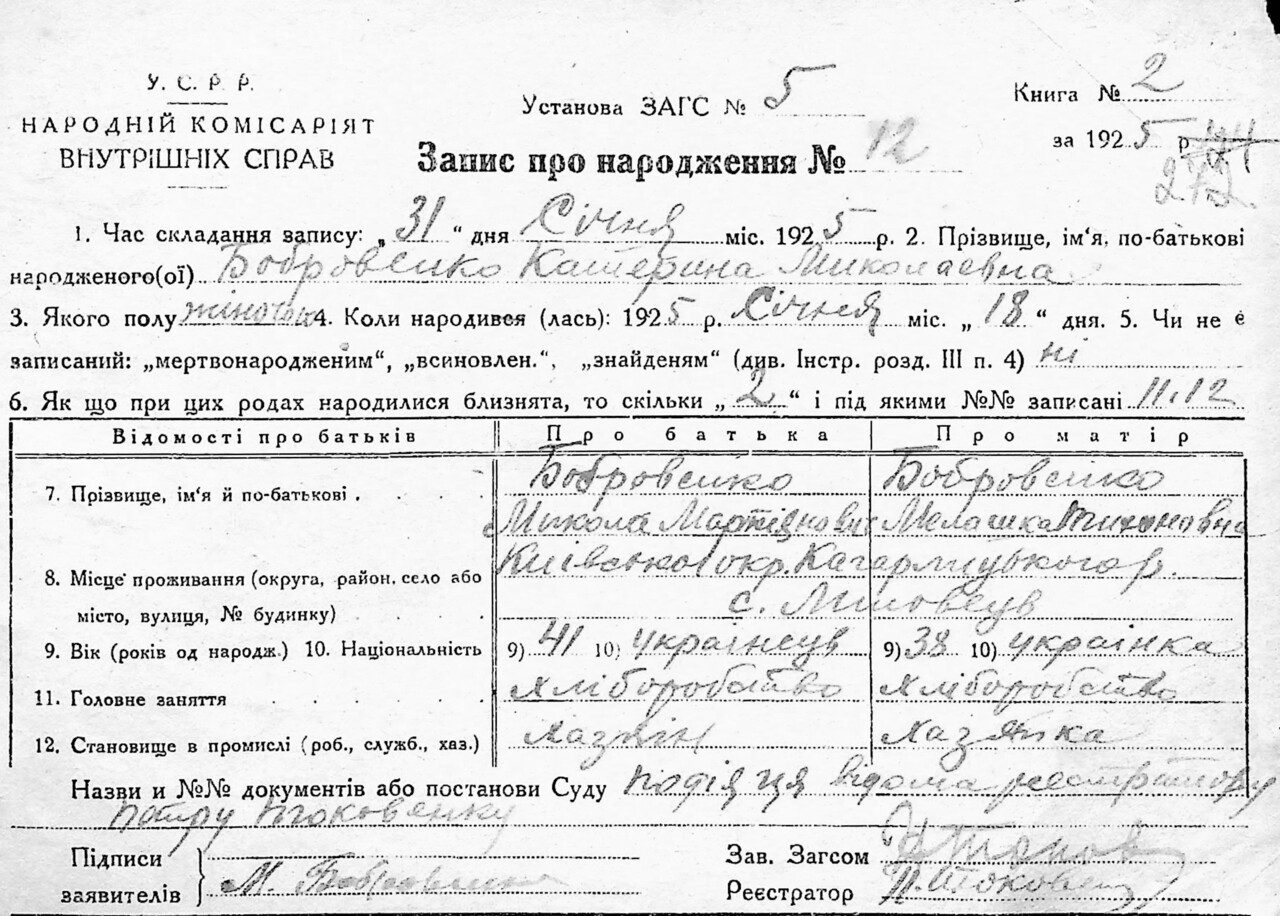 У. С. Р. Р.
НАРОДНІЙ КОМІСАРІЯТ
ВНУТРІШНІХ СПРАВ
Установа ЗАГС № 5
Книга № 2
за 1925 р
272
Запис про народження № 12
1. Час складання запису: „31“ дня Січня міс. 1925 р. 2. Прізвище, ім‘я, по-батькові
народженого(ої) Бобровенко Катерина Миколаевна
3. Якого полу жіночого 4. Коли народився (лась): 1925 р. Січня міс. „18“ дня. 5. Чи не є
записаний: „мертвонародженим“, „всиновлен.“, „знайденям“ (див. Інстр. розд. III п. 4) ні
6. Як що при цих родах народилися близнята, то скільки „2“ і під якими №№ записані 11.12
Відомості про батьків Про батька Про матір
7. Прізвище, ім‘я й по-батькові . Бобровенко Бобровенко
Микола Мартиянович Мелашка Тихоновна
8. Місце проживання (округа, район, село або Київської окр. Кагарлицького р.
місто, вулиця, № будинку) с.
9. Вік (років од народж.) 10. Національність 9) 41 10) українець 9) 38 10) українка
11. Головне заняття хліборобство хліборобство
12. Становище в промислі (роб., служб., хаз.) хазяїн хазяйка
Назви и №№ документів або постанови Суду подія ця відома реєстратору
Підписи
заявителів М. Бобровенко
Зав. Загсом
Реєстратор